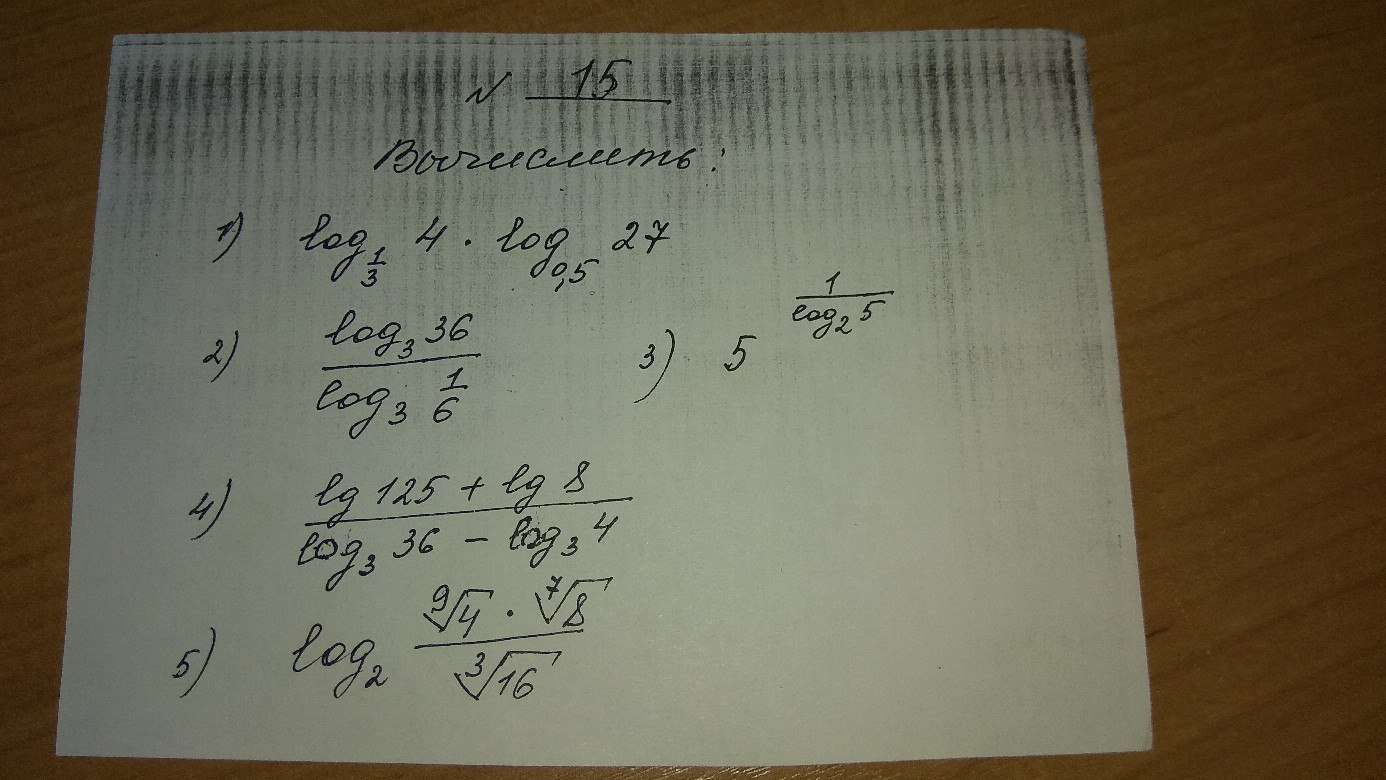 № 15
Вычислить:
1) log_{1/3} 4 · log_{0,5} 27
2) \frac{log_3 36}{log_3 \frac{1}{6}} 3) 5^{\frac{1}{log_2 5}}
4) \frac{lg 125 + lg 8}{log_3 36 - log_3 4}
5) log_2 \frac{\sqrt[9]{4} · \sqrt[7]{8}}{\sqrt[3]{16}}